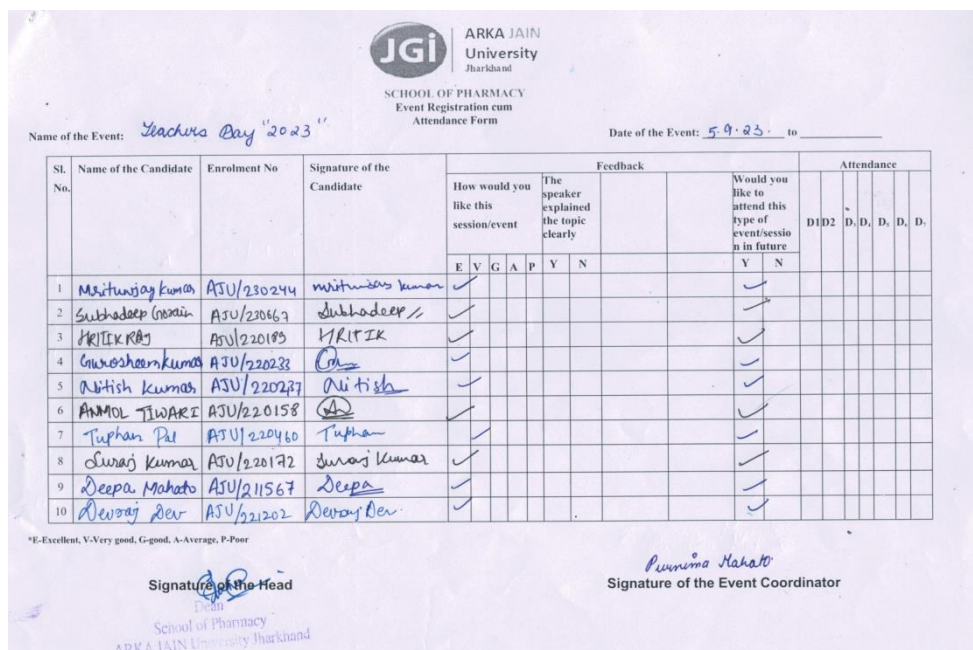 JGi
ARKA JAIN
University
Jharkhand
SCHOOL OF PHARMACY
Event Registration cum
Attendance Form
Name of the Event: Teachers Day "2023"
Date of the Event: 5.9.23. to
Sl. No.
Name of the Candidate
Enrolment No
Signature of the Candidate
Feedback
Attendance
How would you like this session/event
The speaker explained the topic clearly
Would you like to attend this type of event/sessio n in future
D1 D2 D₃ D₄ D₅ D₆ D₇
E V G A P Y N Y N
1 Mritunjay Kumar AJU/230244 mritunjay kumar
2 Subhadeep Gorain AJU/230667 Subhadeep
3 HRITIK RAJ AJU/220189 HRITIK
4 Gurosheem Kumar AJU/220233
5 Nitish Kumar AJU/220237 Nitish
6 ANMOL TIWARI AJU/220158
7 Tuphan Pal AJU/220460 Tuphan
8 Suraj Kumar AJU/220172 Suraj Kumar
9 Deepa Mahato AJU/211567 Deepa
10 Devraj Dev AJU/221202 Devraj Dev
*E-Excellent, V-Very good, G-good, A-Average, P-Poor
Purnima Mahato
Signature of the Head
Signature of the Event Coordinator
Dean
School of Pharmacy
ARKA JAIN University Jharkhand